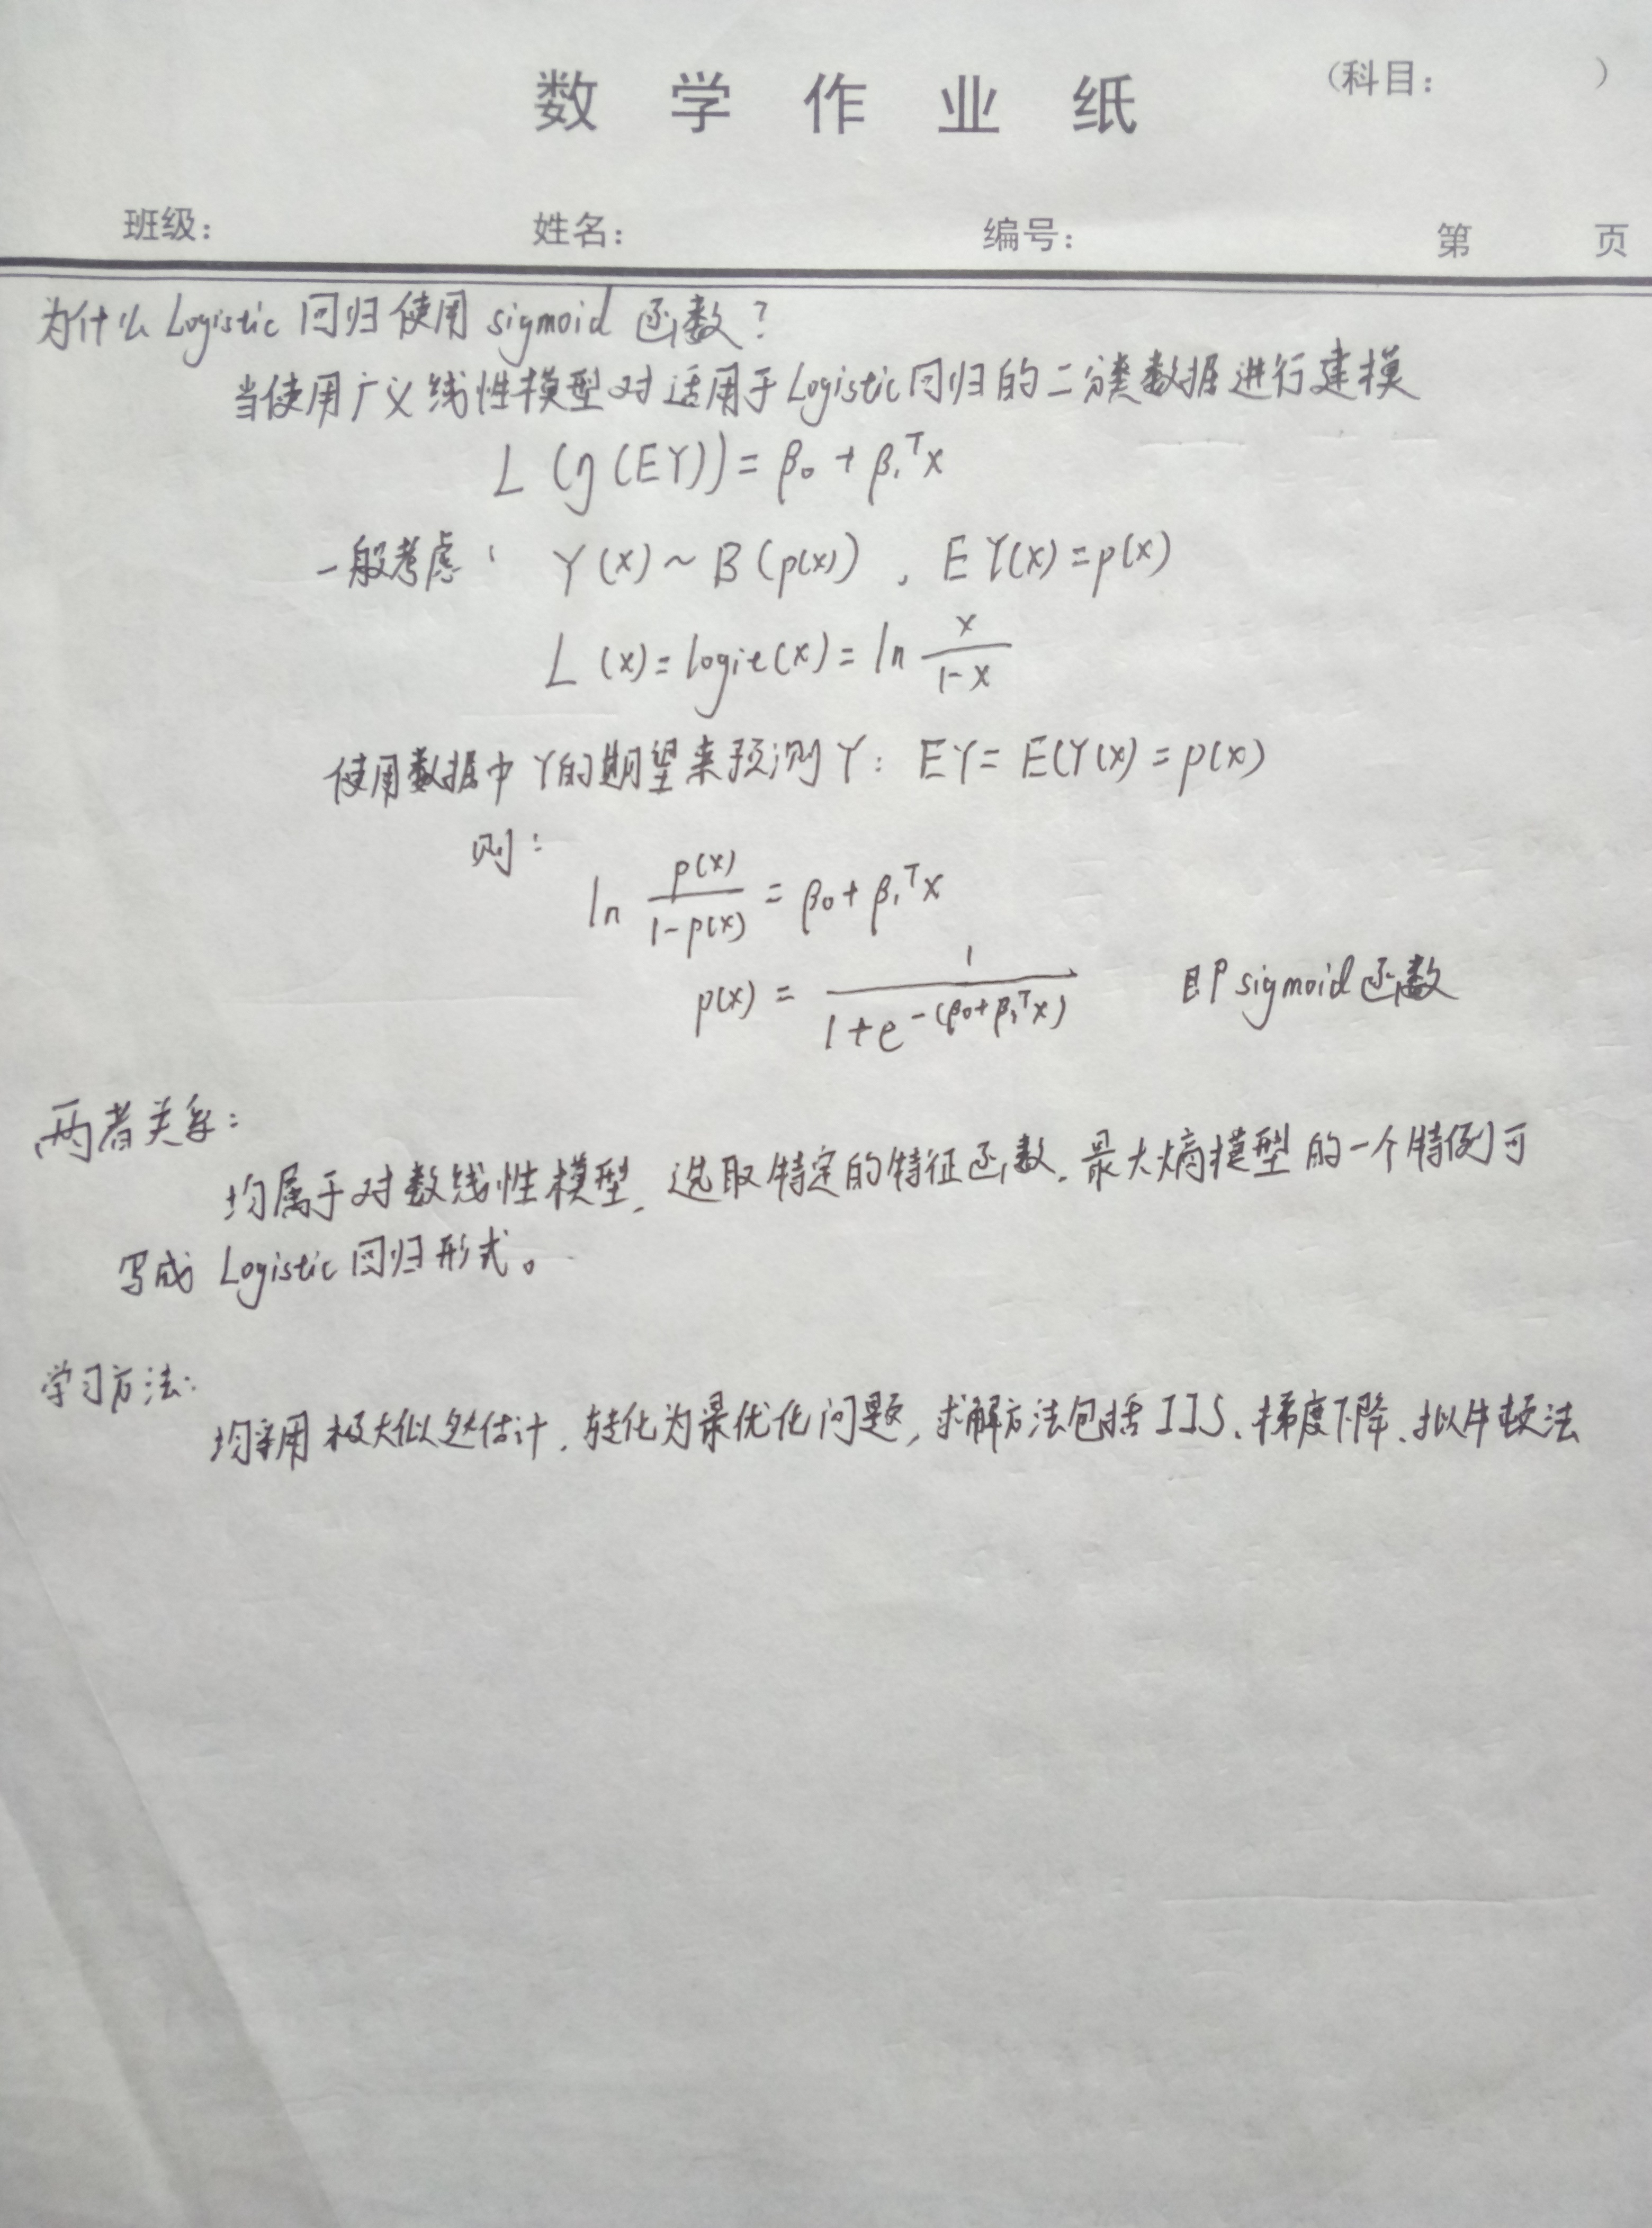 数学作业纸
(科目: )
班级: 姓名: 编号: 第 页
为什么 Logistic 回归使用 sigmoid 函数?
当使用广义线性模型对适用于Logistic回归的二分类数据进行建模
L (g(EY)) = β₀ + β₁ᵀx
一般考虑: Y(x) ~ B(p(x)), EY(x) = p(x)
L(x) = logit(x) = ln x/(1-x)
使用数据中Y的期望来预测Y: EY = E(Y(x) = p(x)
则:
ln p(x)/(1-p(x)) = β₀ + β₁ᵀx
p(x) = 1/(1+e^-(β₀+β₁ᵀx)) 即sigmoid函数
两者关系:
均属于对数线性模型, 选取特定的特征函数, 最大熵模型的一个特例可
写成 Logistic回归形式。
学习方法:
均采用极大似然估计, 转化为最优化问题, 求解方法包括IIS、梯度下降、拟牛顿法